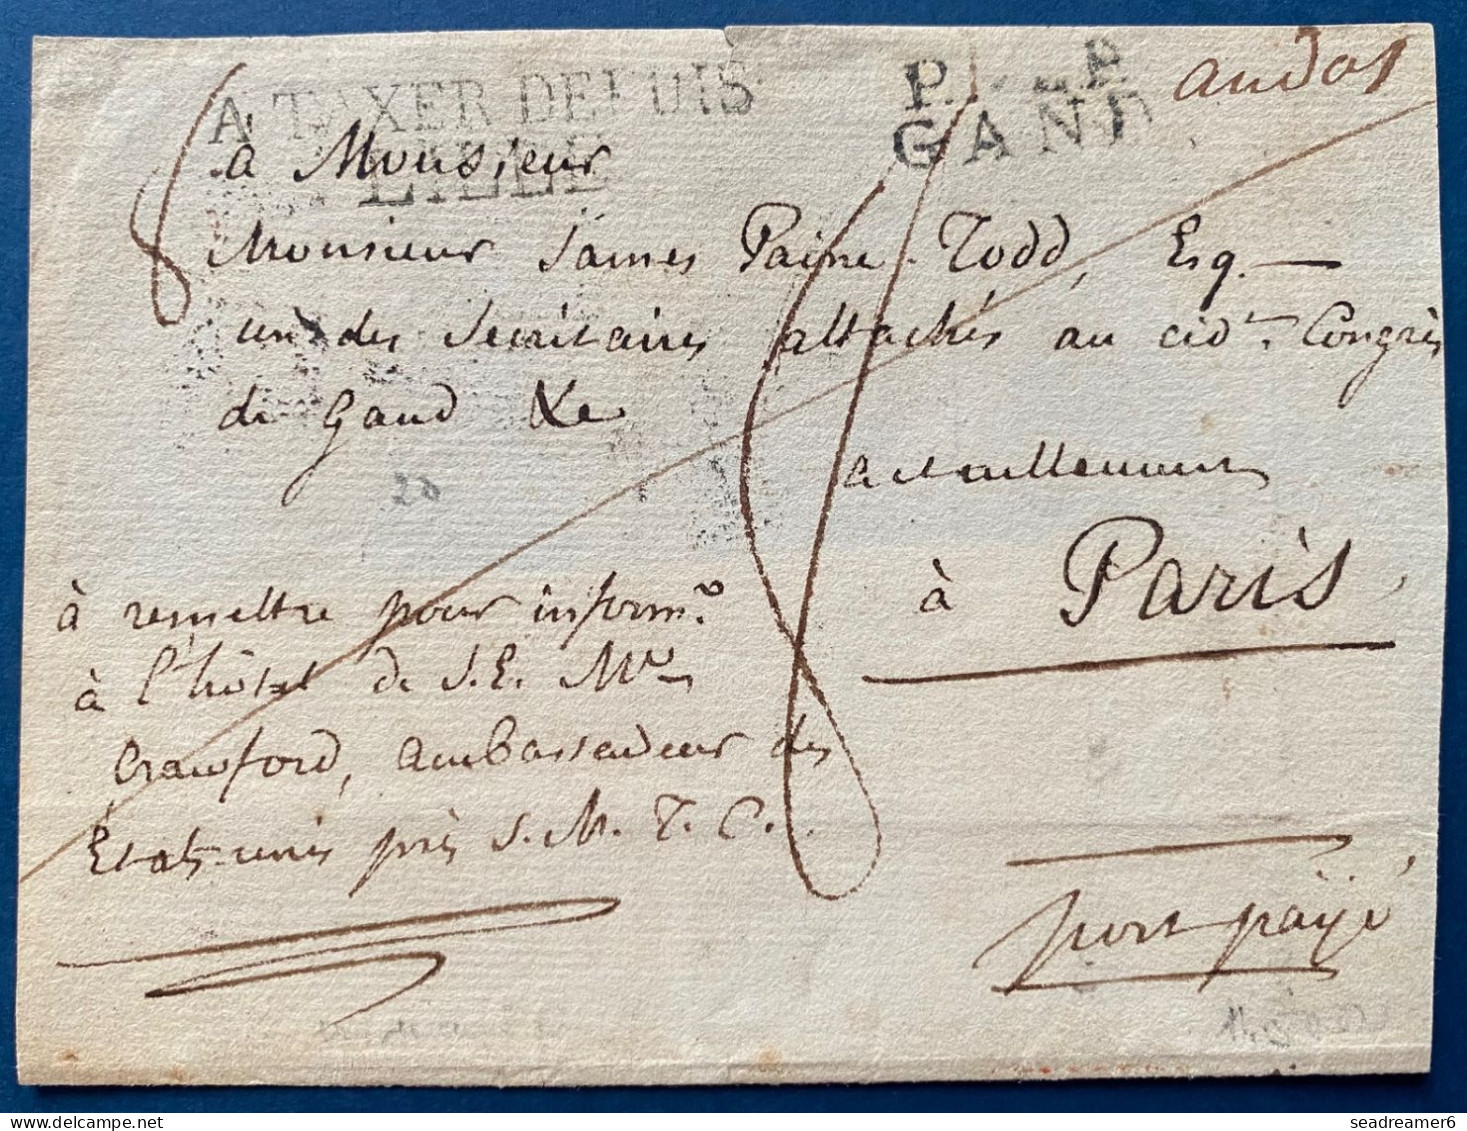 A TAXER DEPUIS
LILLE
P. P. P.
GAND
à Monsieur
Monsieur James Paine Todd, Esq. —
un des Secrétaires attachés au cidt. Congrès
de Gand &e
20
actuellement
à Paris
à remettre pour informon.
à l'hôtel de S. E. Mr
Crawford, ambassadeur des
États-unis près S. M. T. C.
port payé
seadreamer6